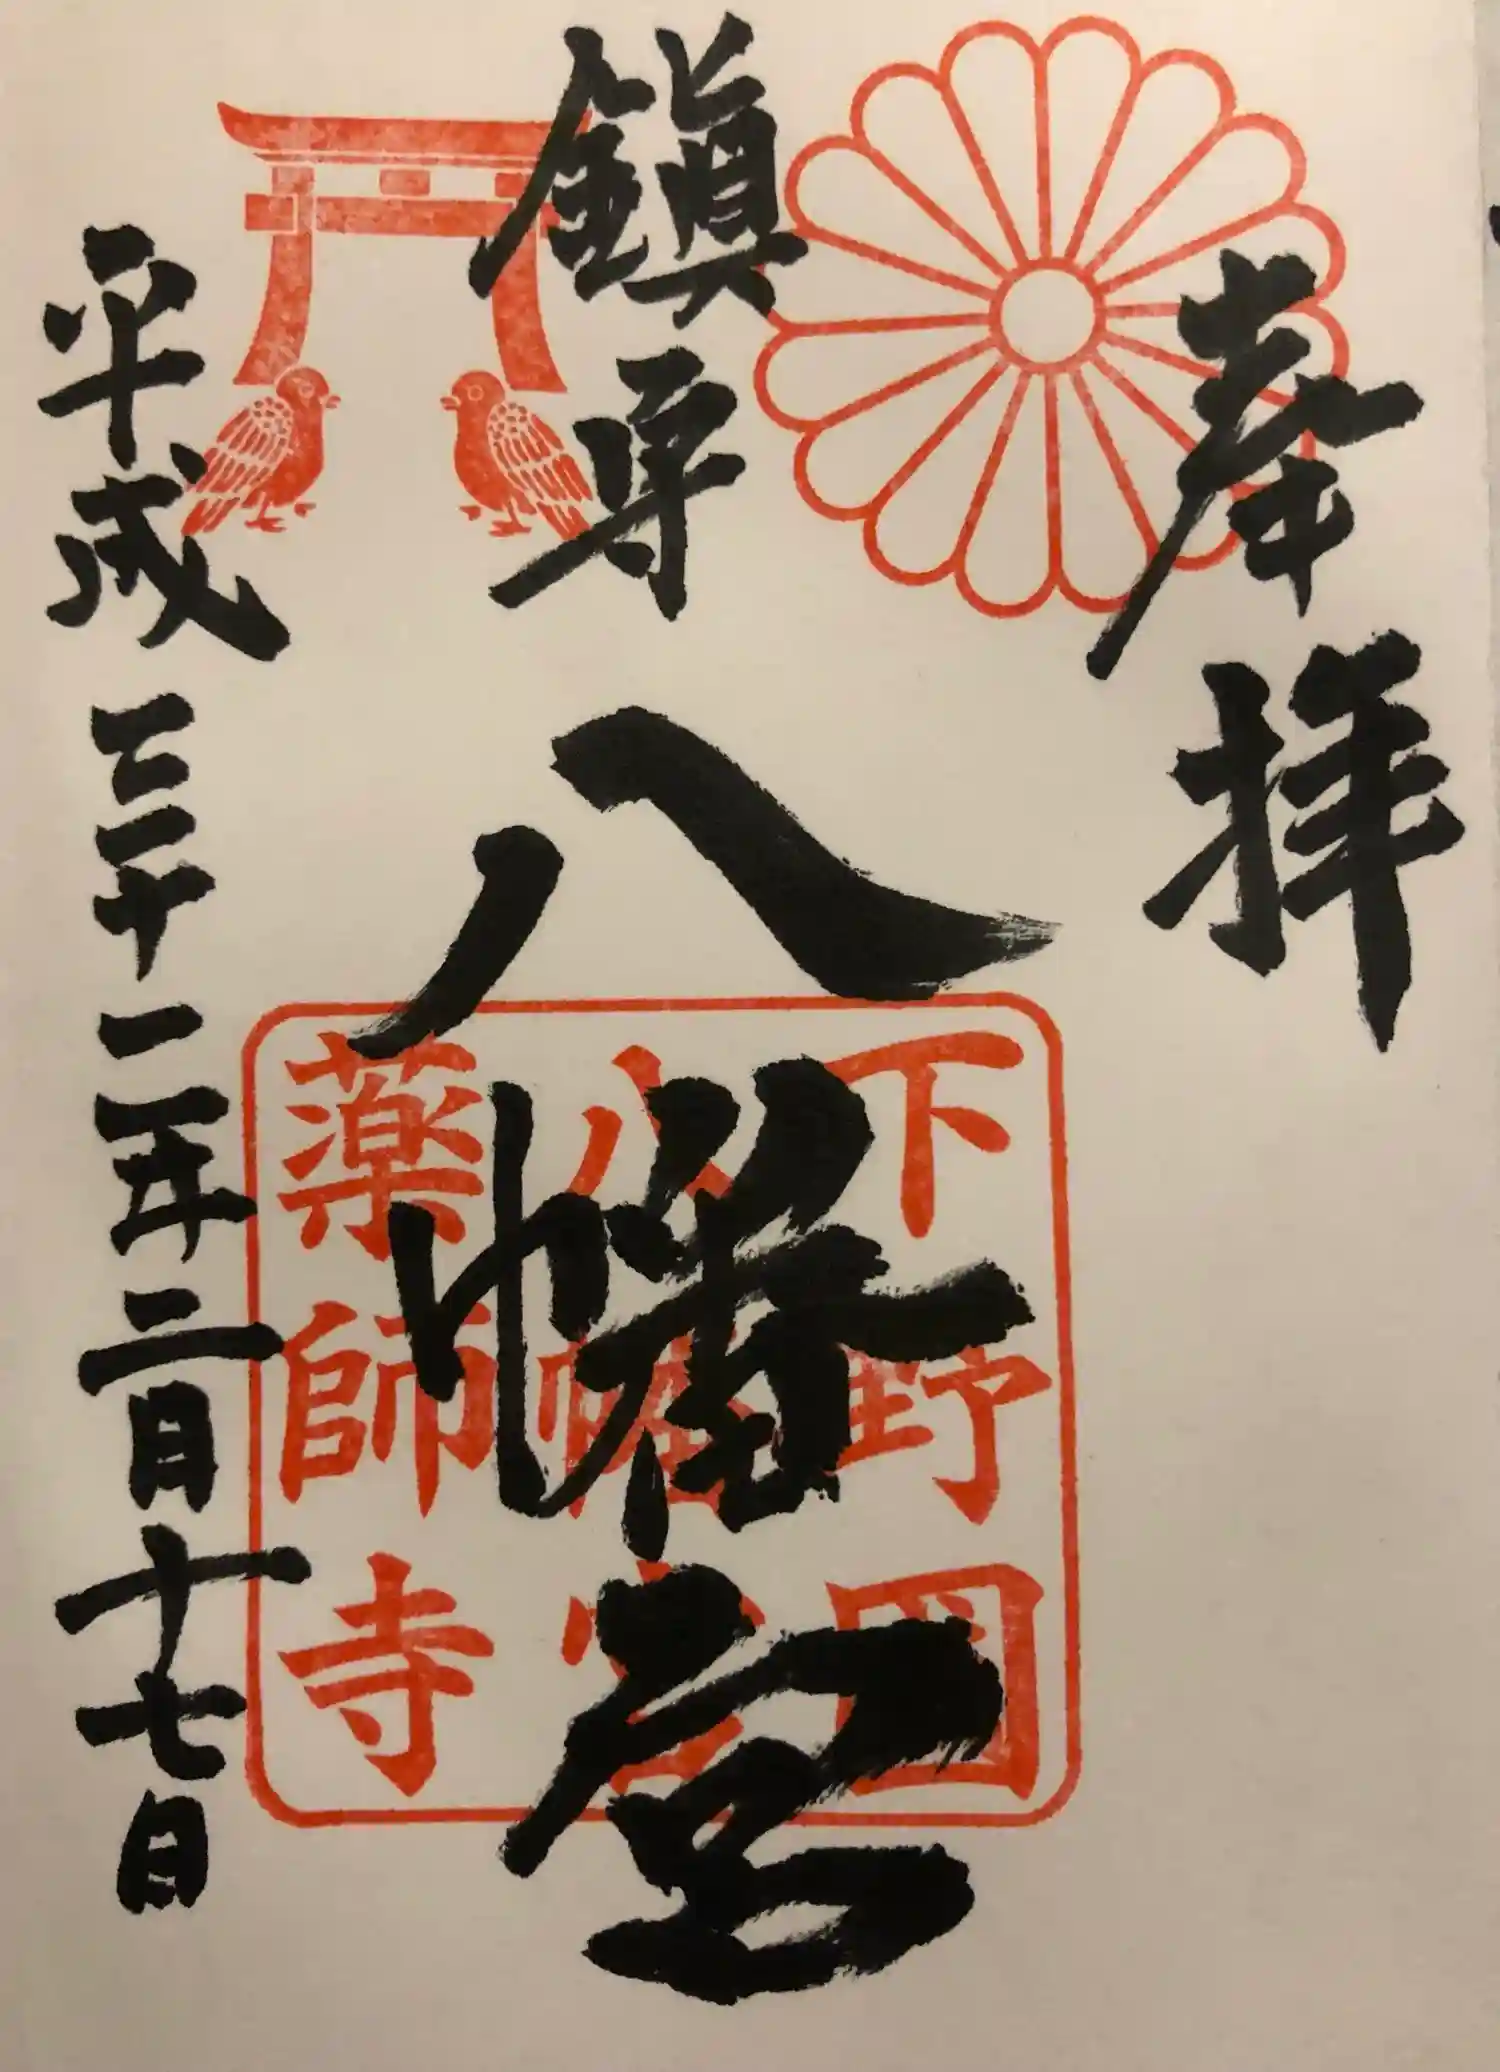 奉拝
鎮守
八幡宮
平成三十一年二月十七日
下野
八幡宮
薬師寺